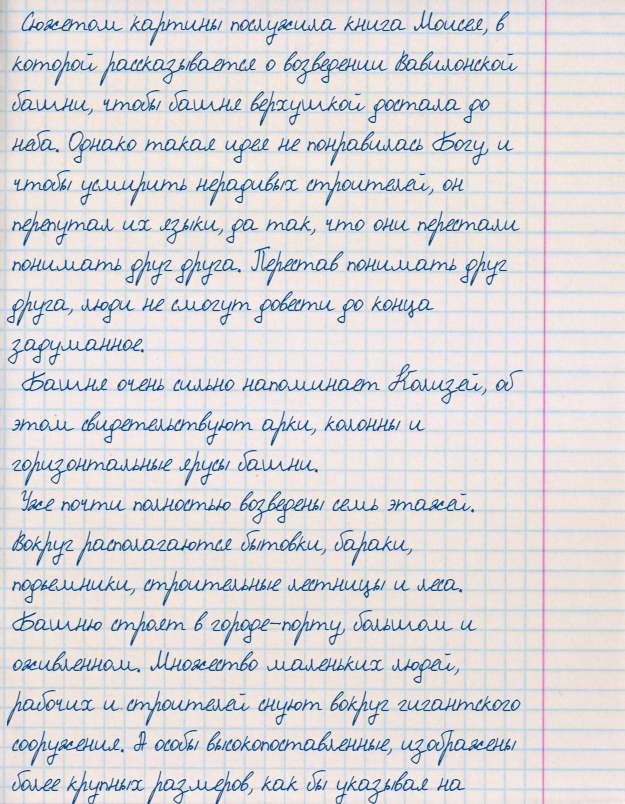 Сюжетом картины послужила книга Моисея, в
которой рассказывается о возведении Вавилонской
башни, чтобы башня верхушкой достала до
неба. Однако такая идея не понравилась Богу, и
чтобы усмирить нерадивых строителей, он
перепутал их языки, да так, что они перестали
понимать друг друга. Перестав понимать друг
друга, люди не смогут довести до конца
задуманное.
Башня очень сильно напоминает Колизей, об
этом свидетельствуют арки, колонны и
горизонтальные ярусы башни.
Уже почти полностью возведены семь этажей.
Вокруг располагаются бытовки, бараки,
подьемники, строительные лестницы и леса.
Башню строят в городе-порту, большом и
оживленном. Множество маленьких людей,
рабочих и строителей снуют вокруг гигантского
сооружения. А особы высокопоставленные, изображены
более крупных размеров, как бы указывая на